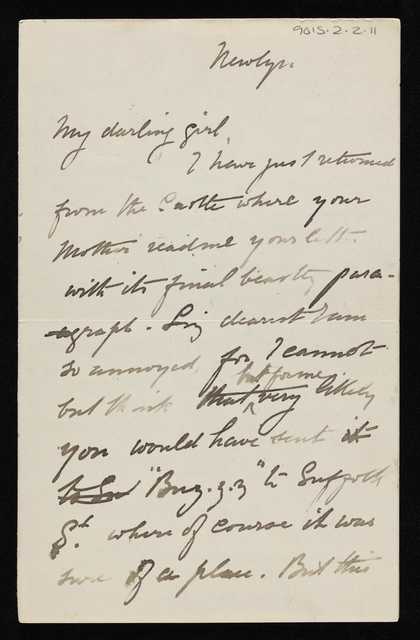 9015.2.2.11
Newlyn.
My darling girl,
I have just returned
from the Castle where your
Mother read me your lett.
with its final beastly para-
graph. Liz dearest I am
so annoyed, for I cannot
but think that but for me very likely
you would have sent it
to Su "Buz.z.z" to Suffolk
St. where of course it was
sure of a place. But this